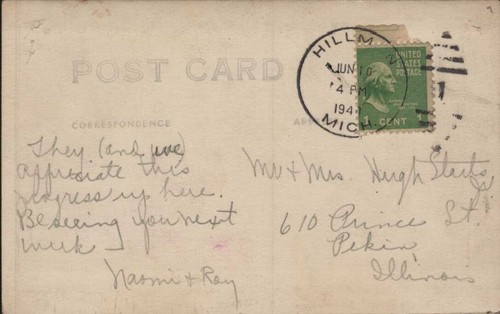 POST CARD
HILLM
JUN 10
4 PM
194
MICH.
UNITED
STATES
POSTAGE
1 CENT
CORRESPONDENCE
They (and we)
appreciate this
progress up here.
Be seeing you next
week —
Naomi & Ray
Mr & Mrs. Hugh
610 Prince St.
Pekin,
Illinois